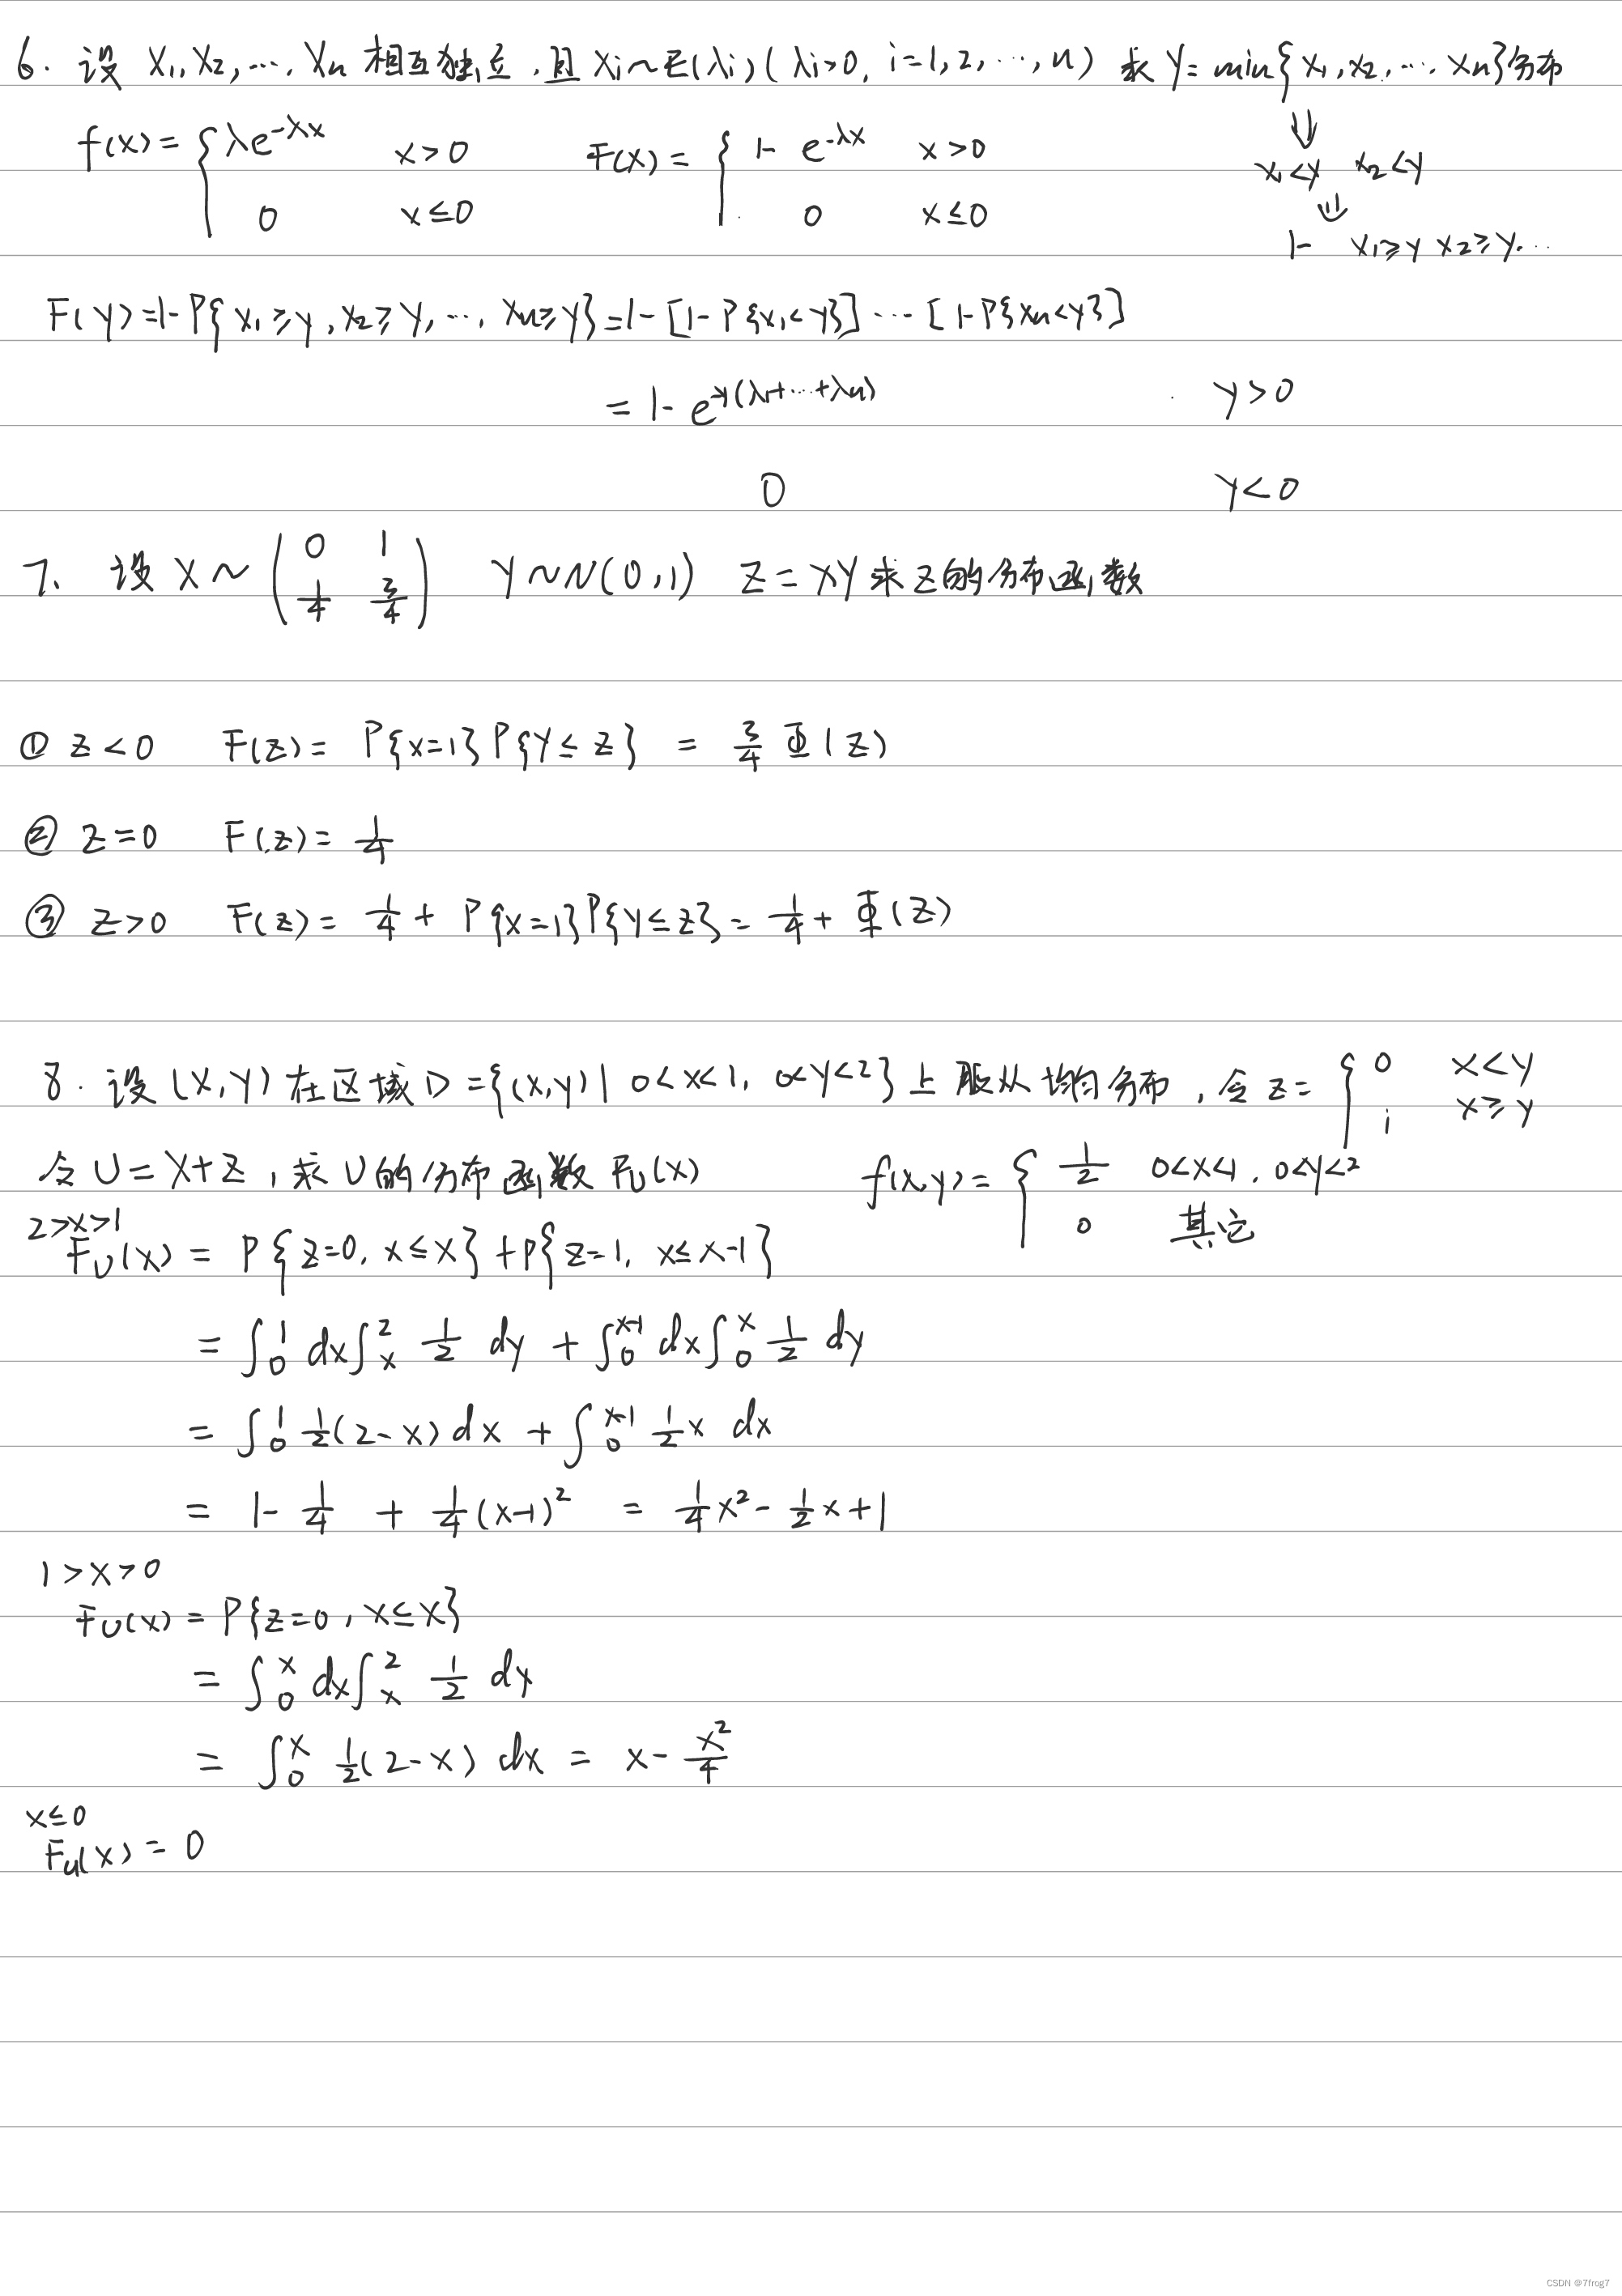 6. 设 X₁, X₂, …, Xₙ 相互独立, 且 Xᵢ ~ E(λᵢ) ( λᵢ>0, i=1, 2, …, n ) 求 Y = min{ x₁, x₂, …, xₙ } 分布
⇓
f(x) = { λe^{-λx} x>0 F(x) = { 1 - e^{-λx} x>0
x₁<y x₂<y
0 x≤0 0 x≤0
⇓
1- x₁≥y x₂≥y…
F(y) = 1-P{ x₁≥y, x₂≥y, …, xₙ≥y } = 1-[1-P{x₁<y}] … [1-P{xₙ<y}]
= 1 - e^{-y(λ₁+…+λₙ)} y>0
0 y<0
7. 设 X ~ ( 0 1 ; 1/4 3/4 ) Y ~ N(0,1) Z = XY 求 Z 的分布函数
① z<0 F(z) = P{x=1} P{Y≤z} = 3/4 Φ(z)
② z=0 F(z) = 1/4
③ z>0 F(z) = 1/4 + P{x=1}P{Y≤z} = 1/4 + Φ(z)
8. 设 (X,Y) 在区域 D = {(x,y) | 0<x<1, 0<y<2} 上服从均匀分布, 令 z = { 0 x<y
1 x≥y
令 U = X+Z, 求 U 的分布函数 F_U(x) f(x,y) = { 1/2 0<x<1, 0<y<2
0 其它
2>x>1
F_U(x) = P{ z=0, x≤x } + P{ z=1, x≤x-1 }
= ∫₀¹ dx ∫ₓ² 1/2 dy + ∫₀^{x-1} dx ∫₀ˣ 1/2 dy
= ∫₀¹ 1/2(2-x) dx + ∫₀^{x-1} 1/2 x dx
= 1 - 1/4 + 1/4(x-1)² = 1/4 x² - 1/2 x + 1
1>x>0
F_U(x) = P{z=0, x≤x}
= ∫₀ˣ dx ∫ₓ² 1/2 dy
= ∫₀ˣ 1/2(2-x) dx = x - x²/4
x≤0
F_u(x) = 0
CSDN @7frog7